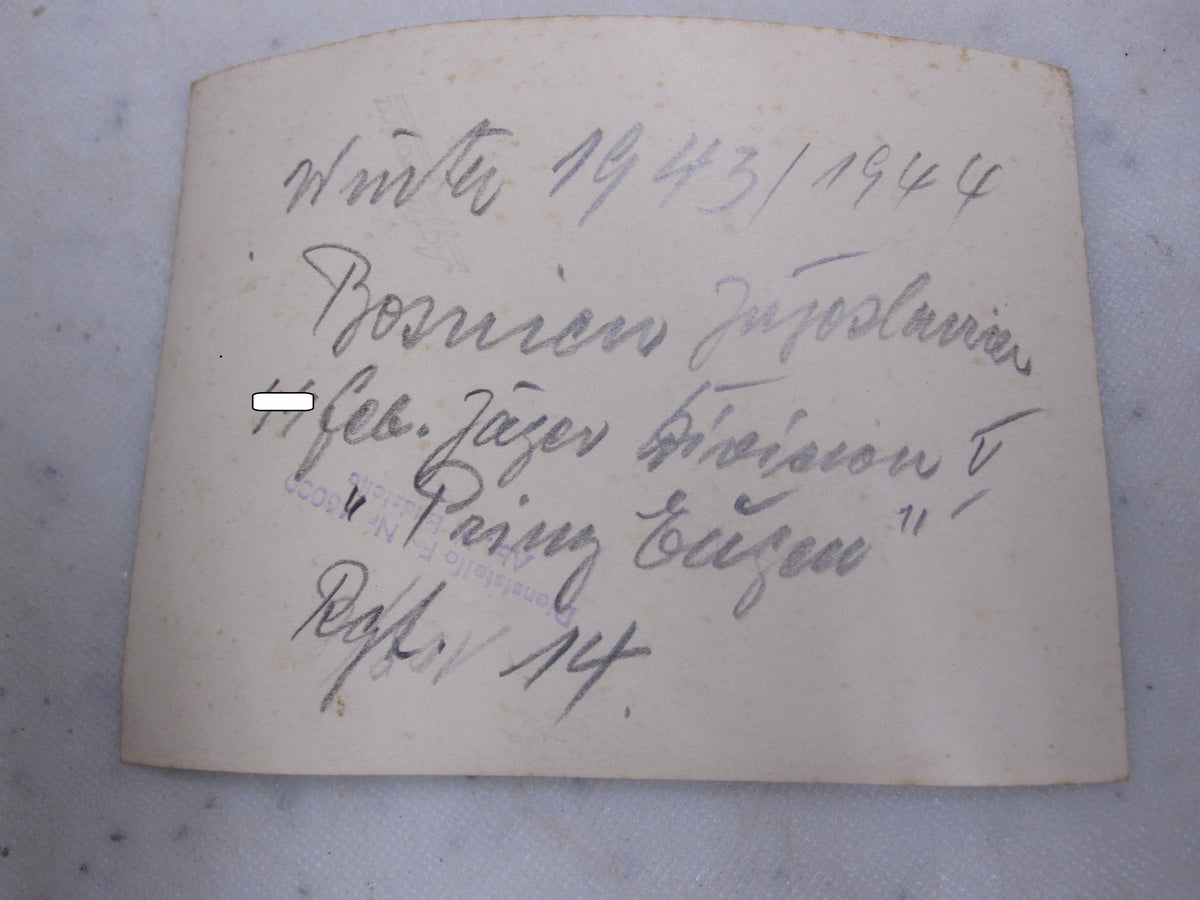 Winter 1943/1944
Bosnien Jugoslavien
Geb. Jäger Division V
"Prinz Eugen"
Rgt. 14.
Dienststelle Fp. Nr.
Bildstelle